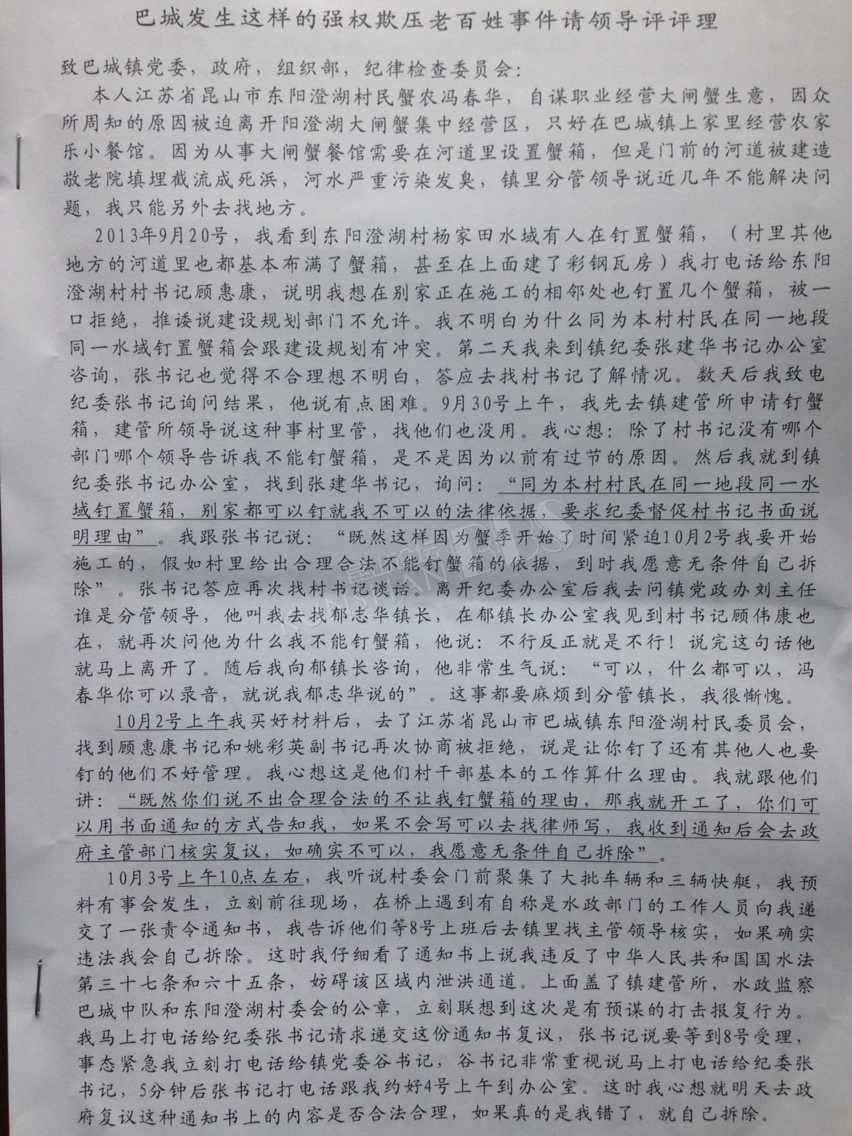 巴城发生这样的强权欺压老百姓事件请领导评评理
致巴城镇党委，政府，组织部，纪律检查委员会：
本人江苏省昆山市东阳澄湖村民蟹农冯春华，自谋职业经营大闸蟹生意，因众
所周知的原因被迫离开阳澄湖大闸蟹集中经营区，只好在巴城镇上家里经营农家
乐小餐馆。因为从事大闸蟹餐馆需要在河道里设置蟹箱，但是门前的河道被建造
敬老院填埋截流成死浜，河水严重污染发臭，镇里分管领导说近几年不能解决问
题，我只能另外去找地方。
2013年9月20号，我看到东阳澄湖村杨家田水域有人在钉置蟹箱，（村里其他
地方的河道里也都基本布满了蟹箱，甚至在上面建了彩钢瓦房）我打电话给东阳
澄湖村村书记顾惠康，说明我想在别家正在施工的相邻处也钉置几个蟹箱，被一
口拒绝，推诿说建设规划部门不允许。我不明白为什么同为本村村民在同一地段
同一水域钉置蟹箱会跟建设规划有冲突。第二天我来到镇纪委张建华书记办公室
咨询，张书记也觉得不合理想不明白，答应去找村书记了解情况。数天后我致电
纪委张书记询问结果，他说有点困难。9月30号上午，我先去镇建管所申请钉蟹
箱，建管所领导说这种事村里管，找他们也没用。我心想：除了村书记没有哪个
部门哪个领导告诉我不能钉蟹箱，是不是因为以前有过节的原因。然后我就到镇
纪委张书记办公室，找到张建华书记，询问：“同为本村村民在同一地段同一水
域钉置蟹箱，别家都可以钉就我不可以的法律依据，要求纪委督促村书记书面说
明理由”。我跟张书记说：“既然这样因为蟹季开始了时间紧迫10月2号我要开始
施工的，假如村里给出合理合法不能钉蟹箱的依据，到时我愿意无条件自己拆
除”。张书记答应再次找村书记谈话。离开纪委办公室后我去问镇党政办刘主任
谁是分管领导，他叫我去找郁志华镇长，在郁镇长办公室我见到村书记顾伟康也
在，就再次问他为什么我不能钉蟹箱，他说：不行反正就是不行！说完这句话他
就马上离开了。随后我向郁镇长咨询，他非常生气说：“可以，什么都可以，冯
春华你可以录音，就说我郁志华说的”。这事都要麻烦到分管镇长，我很惭愧。
10月2号上午我买好材料后，去了江苏省昆山市巴城镇东阳澄湖村民委员会，
找到顾惠康书记和姚彩英副书记再次协商被拒绝，说是让你钉了还有其他人也要
钉的他们不好管理。我心想这是他们村干部基本的工作算什么理由。我就跟他们
讲：“既然你们说不出合理合法的不让我钉蟹箱的理由，那我就开工了，你们可
以用书面通知的方式告知我，如果不会写可以去找律师写，我收到通知后会去政
府主管部门核实复议，如确实不可以，我愿意无条件自己拆除”。
10月3号上午10点左右，我听说村委会门前聚集了大批车辆和三辆快艇，我预
料有事会发生，立刻前往现场，在桥上遇到有自称是水政部门的工作人员向我递
交了一张责令通知书，我告诉他们等8号上班后去镇里找主管领导核实，如果确实
违法我会自己拆除。这时我仔细看了通知书上说我违反了中华人民共和国国水法
第三十七条和六十五条，妨碍该区域内泄洪通道。上面盖了镇建管所，水政监察
巴城中队和东阳澄湖村委会的公章，立刻联想到这次是有预谋的打击报复行为。
我马上打电话给纪委张书记请求递交这份通知书复议，张书记说要等到8号受理，
事态紧急我立刻打电话给镇党委谷书记，谷书记非常重视说马上打电话给纪委张
书记，5分钟后张书记打电话跟我约好4号上午到办公室。这时我心想就明天去政
府复议这种通知书上的内容是否合法合理，如果真的是我错了，就自己拆除。